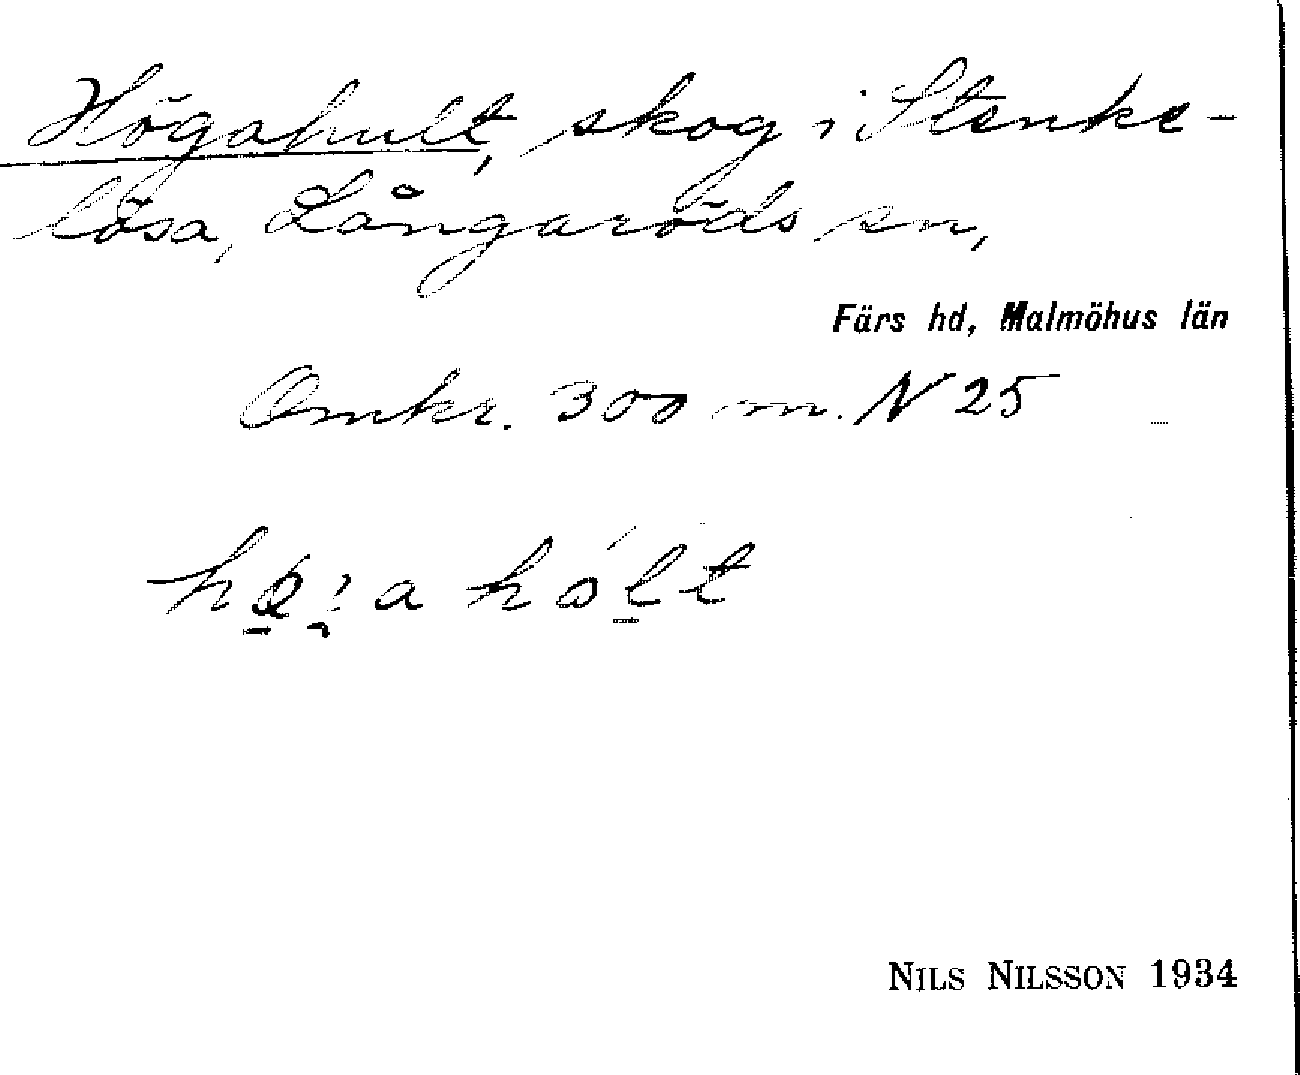 Högahult, skog i Stenke-
lösa, Långaröds sn,
Färs hd, Malmöhus län
Omkr. 300 m. N 25
hø̱ı̯a hólt
NILS NILSSON 1934